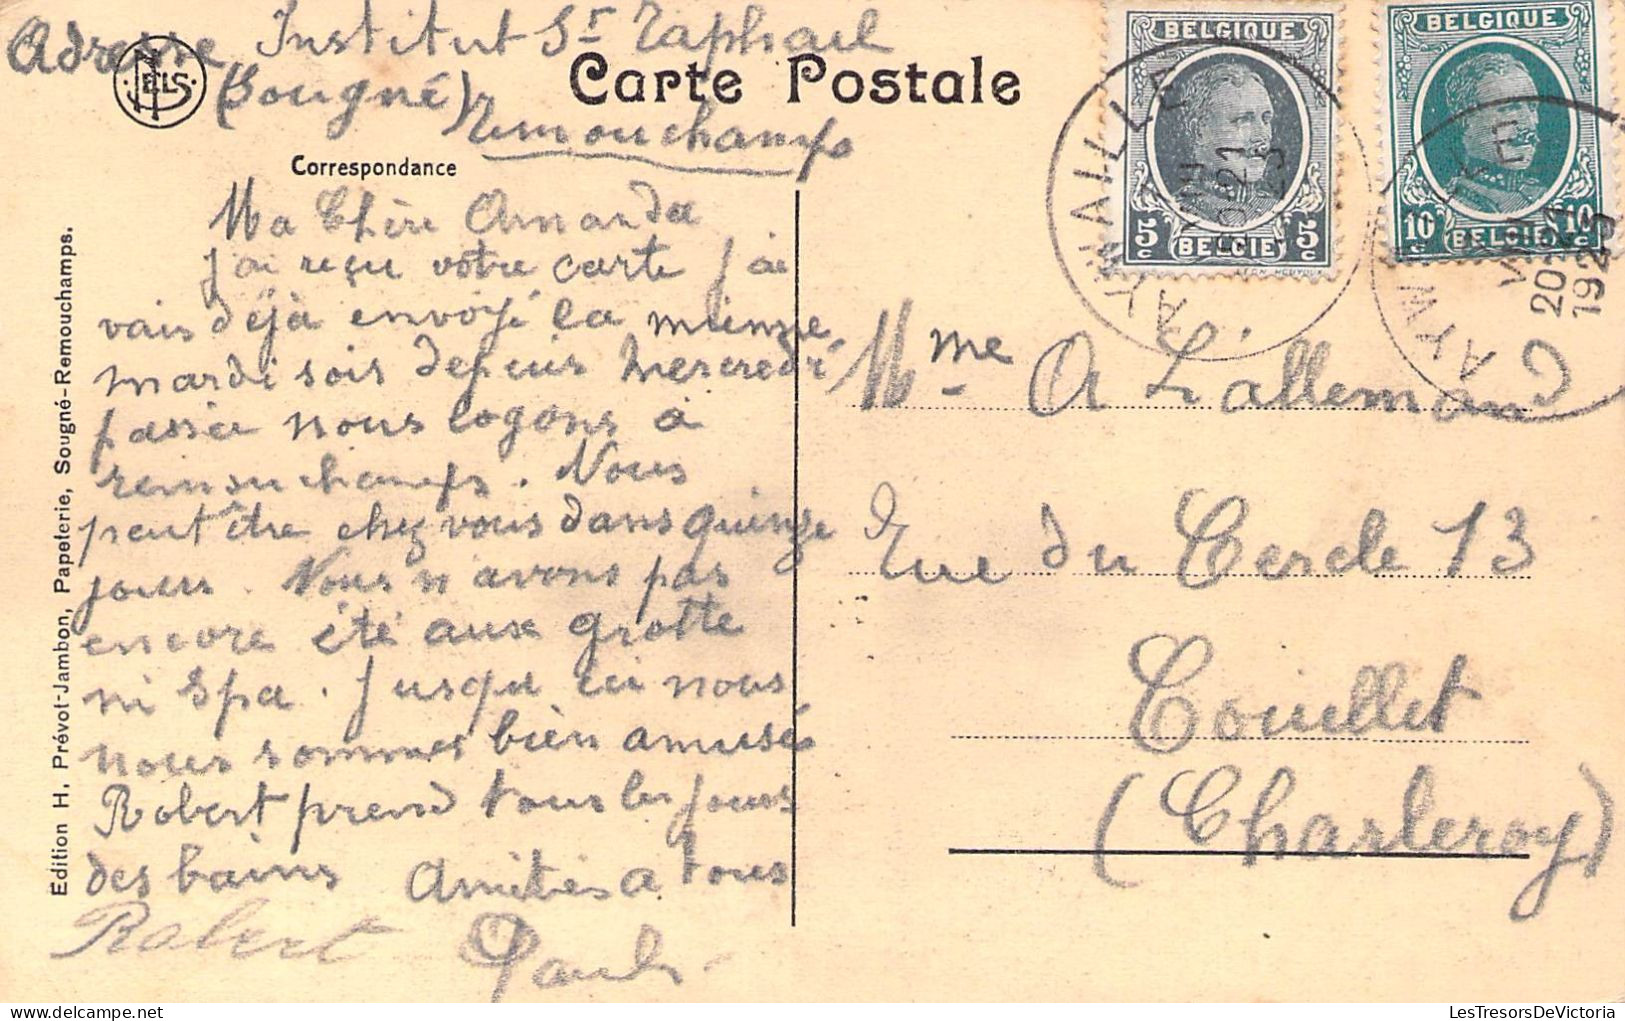 Adresse Institut St Raphael
(Sougné) Remouchamps
NELS
Carte Postale
Correspondance
BELGIQUE
5c 5c
BELGIE
BELGIQUE
10c 10c
BELGIE
AYWAILLE
VIII
20-21
1925
AYWAILLE
VIII
20-21
1925
Ma Chère Amanda
J'ai reçu votre carte J'ai
vais déjà envoyé la mienne
mardi soir depuis Mercredi
passée nous logons à
remouchamps. Nous
peut être chez vous dans quinze
jours. Nous n'avons pas
encore été aux grotte
ni Spa. Jusqu ici nous
nous sommes bien amusés
Robert prend tous les jours
des bains Amitiés a tous
Robert Paula
Mme A Lallemand
Rue du Cercle 13
Couillet
(Charleroy)
Edition H. Prévot-Jambon, Papeterie, Sougné-Remouchamps.
LesTresorsDeVictoria.com